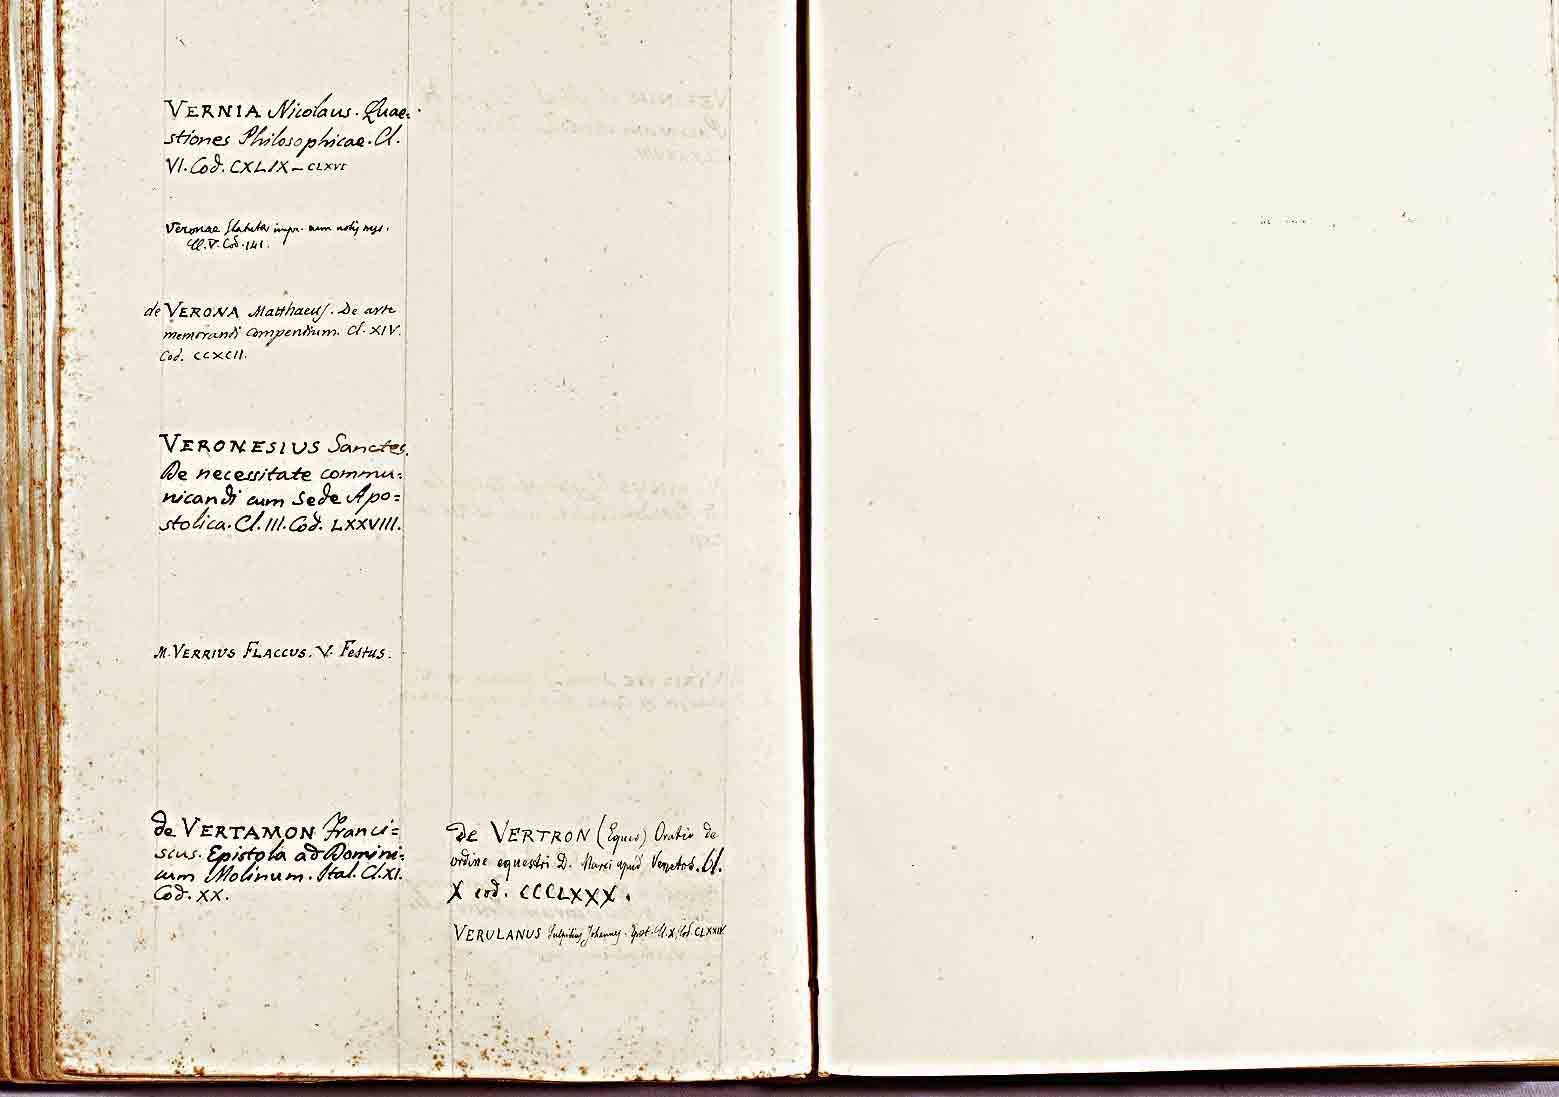 VERNIA Nicolaus. Quae=
stiones Philosophicae. Cl.
VI. Cod. CXLIX - CLXVI
Veronae Statuta impr. cum notis mss.
Cl. V. Cod. 141.
de VERONA Matthaeus. De arte
memorandi Compendium. Cl. XIV.
Cod. CCXCII.
VERONESIUS Sanctes.
De necessitate commu=
nicandi cum Sede Apo=
stolica. Cl. III. Cod. LXXVIII.
M. VERRIUS FLACCUS. V. Festus.
de VERTAMON Franci=
scus. Epistola ad Domini=
cum Molinum. Ital. Cl. XI.
Cod. XX.
de VERTRON (Eques) Oratio de
ordine equestri D. Marci apud Venetos. Cl.
X cod. CCCLXXX.
VERULANUS Sulpitius Johannes. Epist. Cl. X. Cod. CLXXIV